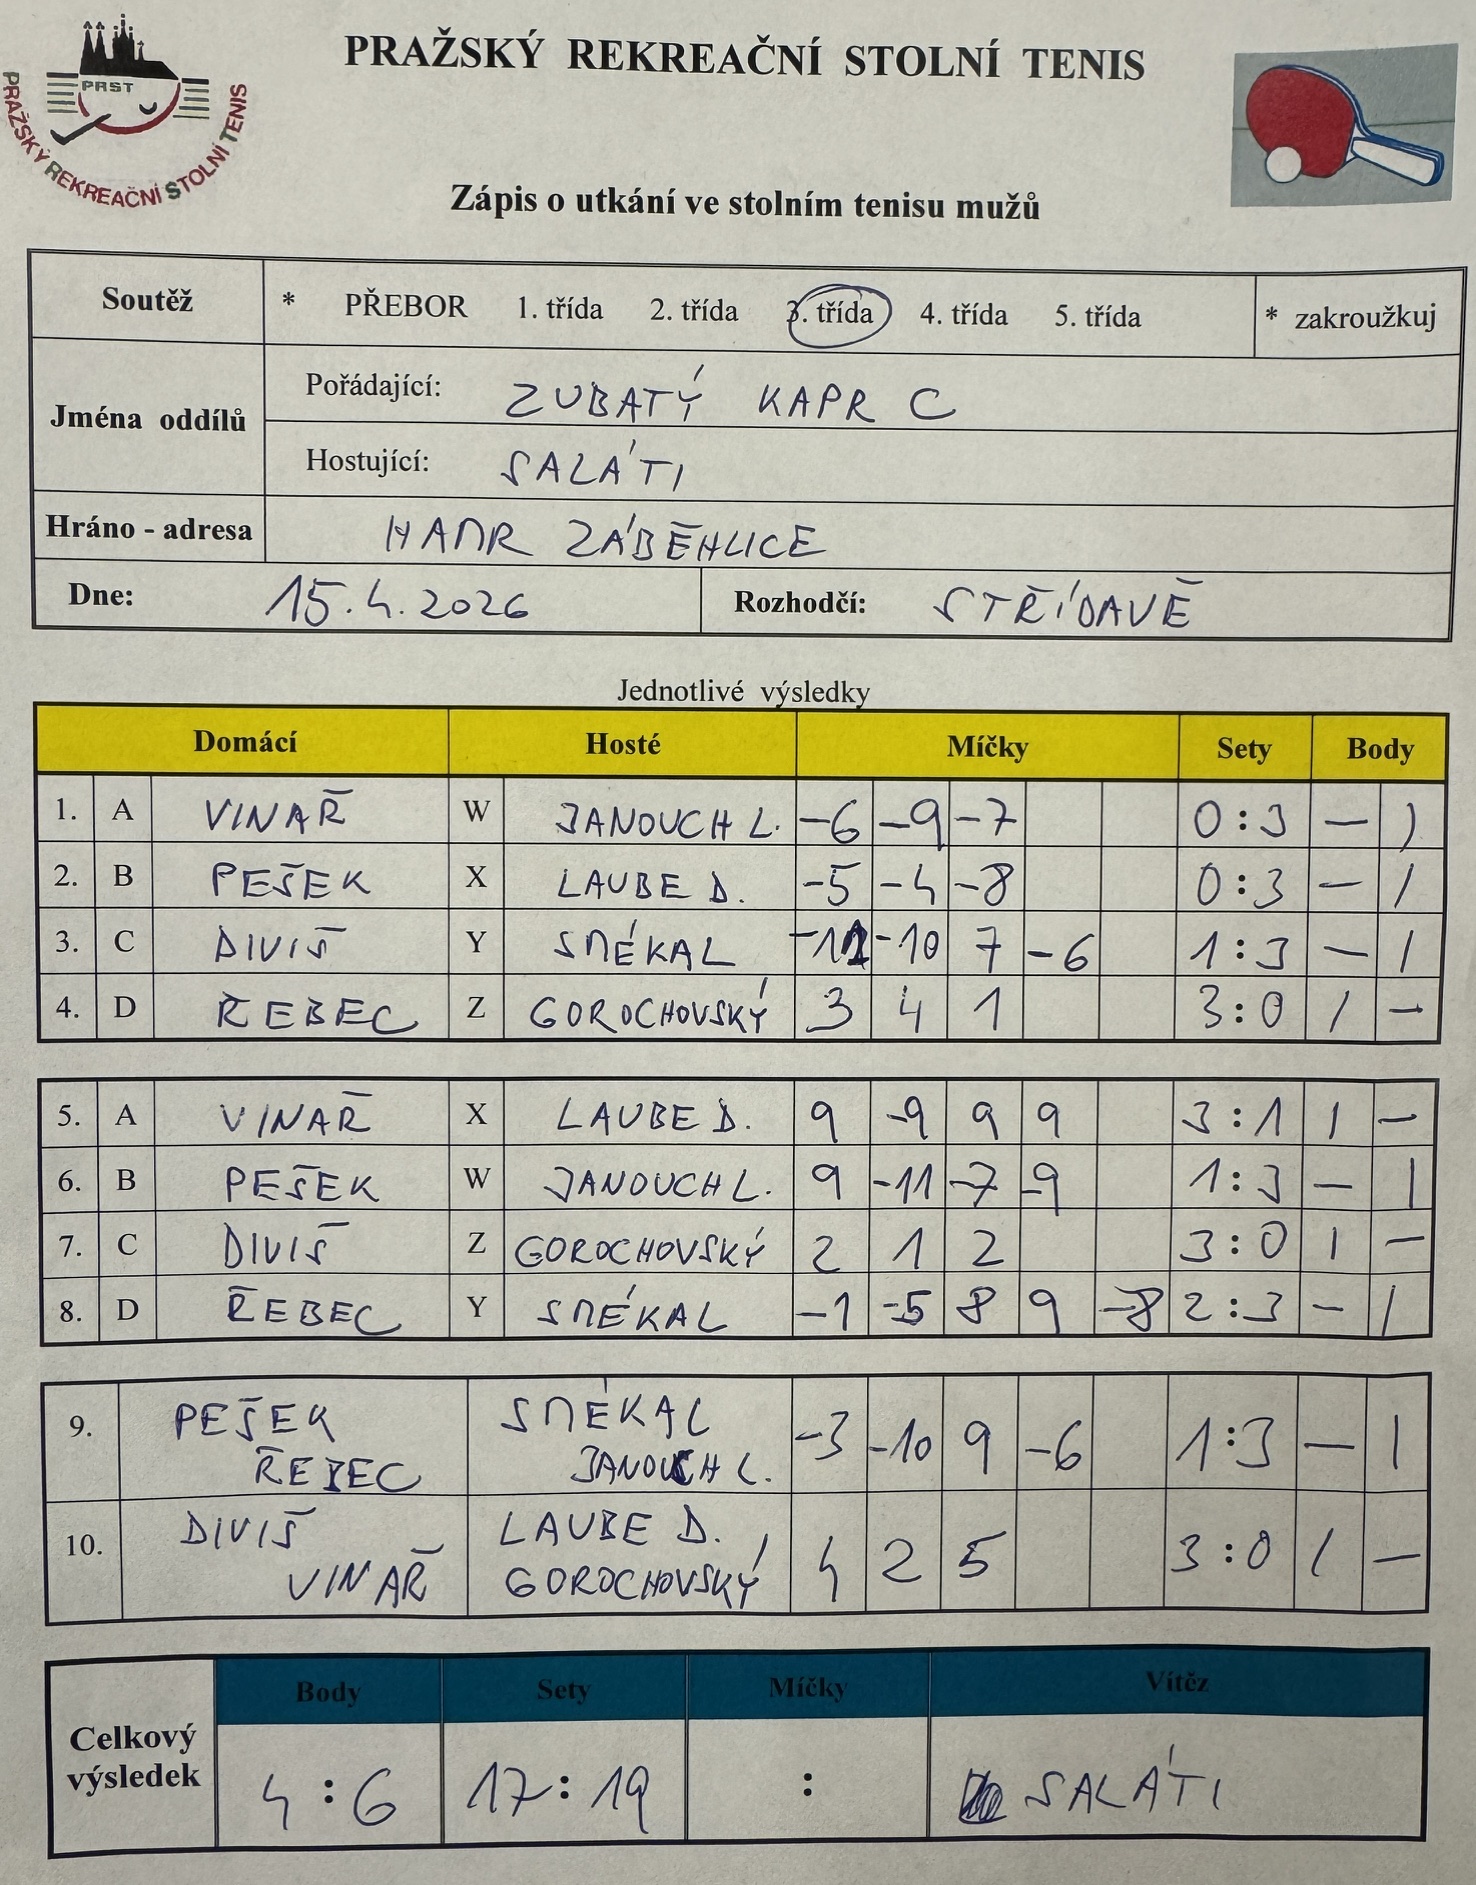 PRST
PRAŽSKÝ REKREAČNÍ STOLNÍ TENIS
PRAŽSKÝ REKREAČNÍ STOLNÍ TENIS
Zápis o utkání ve stolním tenisu mužů
Soutěž * PŘEBOR 1. třída 2. třída 3. třída 4. třída 5. třída * zakroužkuj
Jména oddílů
Pořádající: ZUBATÝ KAPR C
Hostující: SALÁTI
Hráno - adresa HAMR ZÁBĚHLICE
Dne: 15.4.2026 Rozhodčí: STŘÍDAVĚ
Jednotlivé výsledky
Domácí Hosté Míčky Sety Body
1. A VINAŘ W JANOUCH L. -6 -9 -7 0:3 — 1
2. B PEŠEK X LAUBE D. -5 -4 -8 0:3 — 1
3. C DIVIŠ Y SMÉKAL -12 -10 7 -6 1:3 — 1
4. D ŘEBEC Z GOROCHOVSKÝ 3 4 1 3:0 1 —
5. A VINAŘ X LAUBE D. 9 -9 9 9 3:1 1 —
6. B PEŠEK W JANOUCH L. 9 -11 -7 -9 1:3 — 1
7. C DIVIŠ Z GOROCHOVSKÝ 2 1 2 3:0 1 —
8. D ŘEBEC Y SMÉKAL -1 -5 8 9 -8 2:3 — 1
9. PEŠEK SMÉKAL -3 -10 9 -6 1:3 — 1
ŘEBEC JANOUCH L.
10. DIVIŠ LAUBE D. 4 2 5 3:0 1 —
VINAŘ GOROCHOVSKÝ
Celkový výsledek
Body Sety Míčky Vítěz
4:6 17:19 : SALÁTI